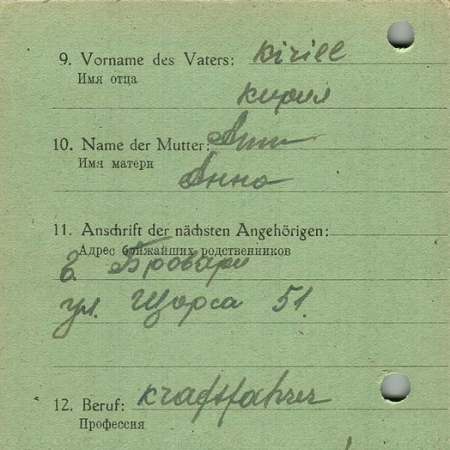 9. Vorname des Vaters: Kirill
Имя отца
Кирил
10. Name der Mutter: Ann
Имя матери
Анна
11. Anschrift der nächsten Angehörigen:
Адрес ближайших родственников
Бровари
ул. Щорса 51.
12. Beruf: Kraftfahrer
Профессия